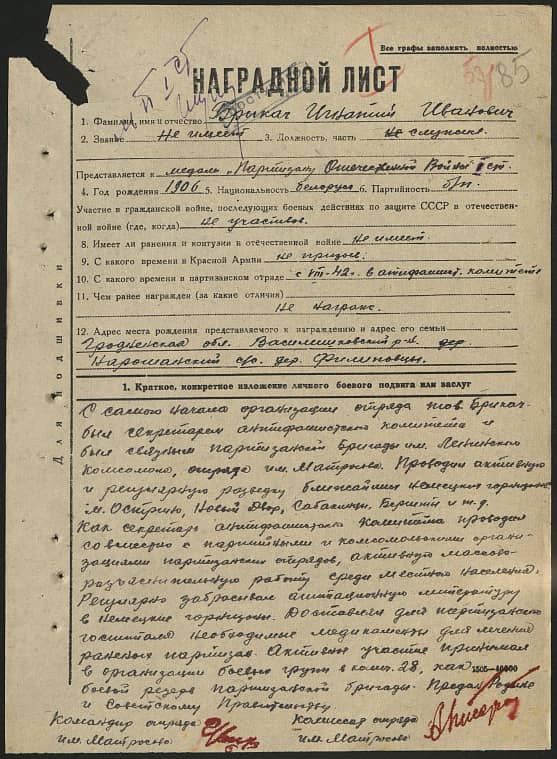 Все графы заполнять полностью
53/85
НАГРАДНОЙ ЛИСТ
1. Фамилия, имя и отчество Брикач Игнатий Иванович
2. Звание Не имеет 3. Должность, часть не служил
Представляется к медаль „Партизану Отечественной Войны" I ст.
4. Год рождения 1906 5. Национальность белорус 6. Партийность б/п.
Участие в гражданской войне, последующих боевых действиях по защите СССР в отечествен-
ной войне (где, когда) не участвов.
8. Имеет ли ранения и контузии в отечественной войне Не имеет.
9. С какого времени в Красной Армии Не призыв.
10. С какого времени в партизанском отряде с VIII-42г. в антифашист. комитете
11. Чем ранее награжден (за какие отличия)
Не награж.
12. Адрес места рождения представляемого к награждению и адрес его семьи
Гродненская обл. Василишковский р-н дер.
Нарошанский с/с. дер. Филиповцы.
Для подшивки
1. Краткое, конкретное изложение личного боевого подвига или заслуг
С самого начала организации отряда тов. Брикач
был секретарем антифашистского комитета и
был связным партизанской Бригады им. Ленинского
Комсомола, отряда им. Матросова. Проводил активную
и регулярную разведку ближайших немецких гарнизонов
м. Острино, Новый Двор, Собакинцы, Бершты и т.д.
Как секретарь антифашистского комитета проводил
совместно с партийными и комсомольскими органи-
зациями партизанских отрядов, активную массово-
разъяснительную работу среди местного населения.
Регулярно забрасывал агитационную литературу
в немецкие гарнизоны. Доставлял для партизанского
госпиталя необходимые медикаменты для лечения
раненых партизан. Активное участие принимал
в организации боевых групп в 28, как 1505—40000
боевой резерв партизанской бригады. Предан Родине
и Советскому Правительству
Командир отряда Комиссар отряда
им. Матросова им. Матросова